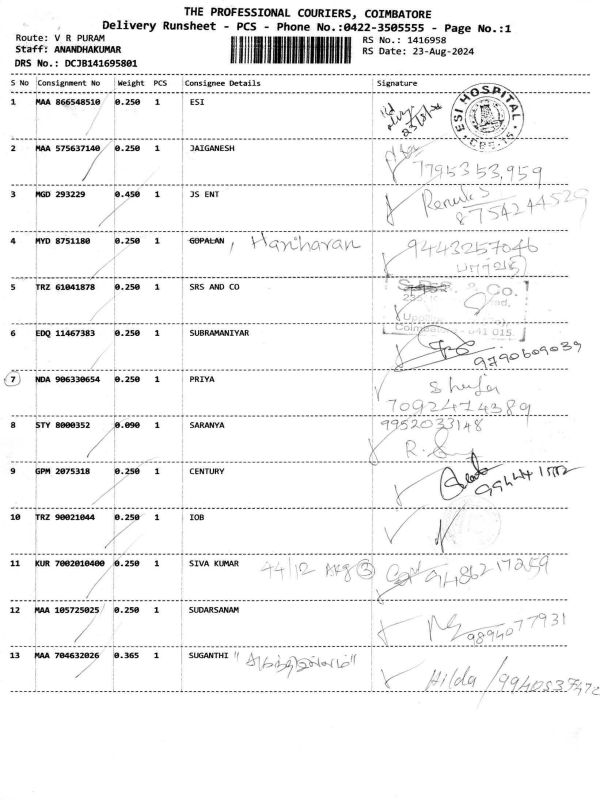 THE PROFESSIONAL COURIERS, COIMBATORE
Delivery Runsheet - PCS - Phone No.:0422-3505555 - Page No.:1
Route: V R PURAM
Staff: ANANDHAKUMAR
DRS No.: DCJB141695801
RS No.: 1416958
RS Date: 23-Aug-2024
S No Consignment No Weight PCS Consignee Details Signature
1 MAA 866548510 0.250 1 ESI 23/8/24 ESI HOSPITAL CBE-15
2 MAA 575637140 0.250 1 JAIGANESH 7795353,959
3 MGD 293229 0.450 1 JS ENT Renuka S
8754244529
4 MYD 8751180 0.250 1 GOPALAN, Hariharan 9443257046
5 TRZ 61041878 0.250 1 SRS AND CO & Co.
Coimbatore - 641 015
6 EDQ 11467383 0.250 1 SUBRAMANIYAR 9790609039
7 NDA 906330654 0.250 1 PRIYA
7092474389
8 STY 8000352 0.090 1 SARANYA 9952033148
9 GPM 2075318 0.250 1 CENTURY
10 TRZ 90021044 0.250 1 IOB
11 KUR 7002010400 0.250 1 SIVA KUMAR 44/12 AKG 3 9486217259
12 MAA 105725025 0.250 1 SUDARSANAM 9894077931
13 MAA 704632026 0.365 1 SUGANTHI Hilda / 9940537472